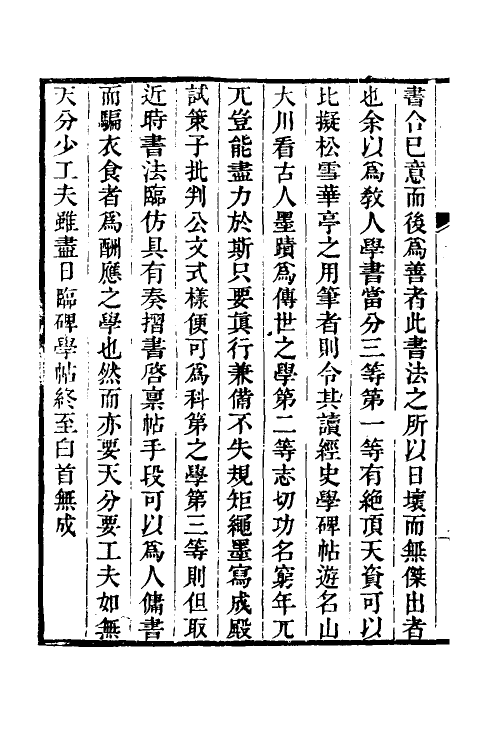 書合己意而後爲善者此書法之所以日壞而無傑出者
也余以爲敎人學書當分三等第一等有絶頂天資可以
比擬松雪華亭之用筆者則令其讀經史學碑帖遊名山
大川看古人墨蹟爲傳世之學第二等志切功名窮年兀
兀豈能盡力於斯只要眞行兼備不失規矩繩墨寫成殿
試策子批判公文式樣便可爲科第之學第三等則但取
近時書法臨仿具有奏摺書啓稟帖手段可以爲人傭書
而騙衣食者爲酬應之學也然而亦要天分要工夫如無
天分少工夫雖盡日臨碑學帖終至白首無成